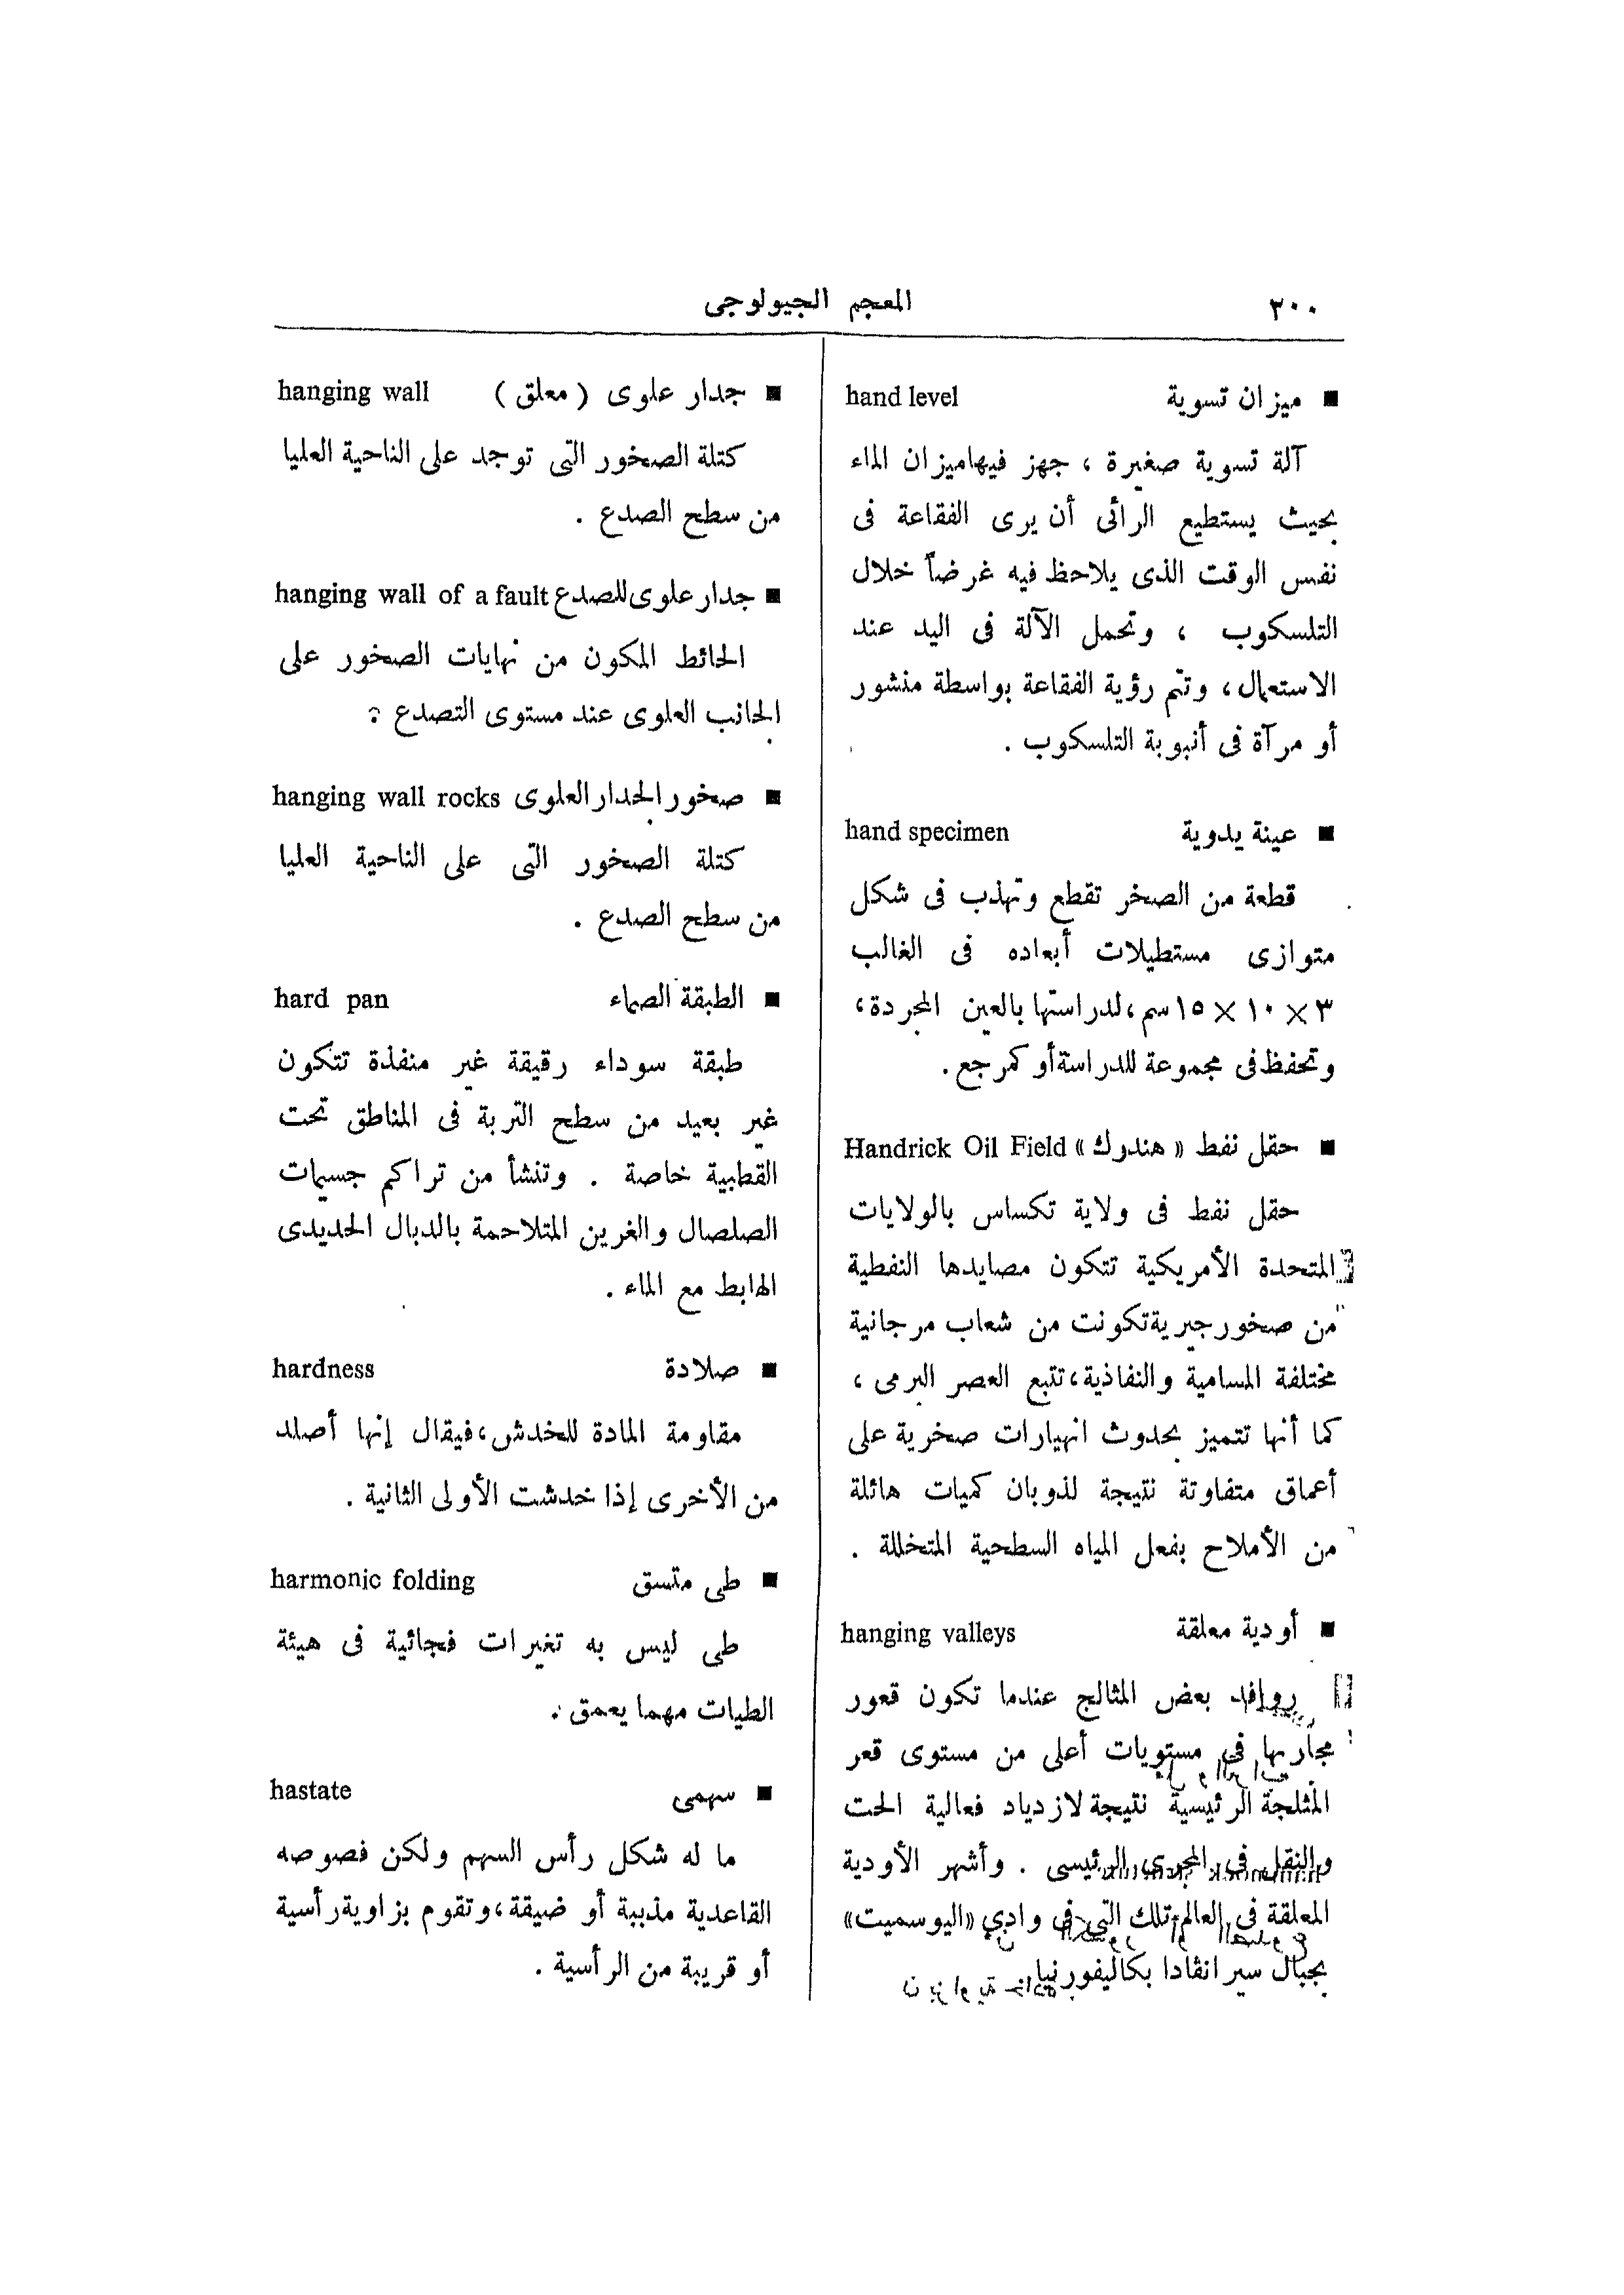 ٣٠٠
المعجم الجيولوجى
■ ميزان تسوية hand level
آلة تسوية صغيرة ، جهز فيهاميزان الماء
بحيث يستطيع الرائى أن يرى الفقاعة فى
نفس الوقت الذى يلاحظ فيه غرضاً خلال
التلسكوب ، وتحمل الآلة فى اليد عند
الاستعمال ، وتتم رؤية الفقاعة بواسطة منشور
أو مرآة فى أنبوبة التلسكوب .
■ عينة يدوية hand specimen
قطعة من الصخر تقطع وتهذب فى شكل
متوازى مستطيلات أبعاده فى الغالب
٣ × ١٠ × ١٥ سم ، لدراستها بالعين المجردة ،
وتحفظ فى مجموعة للدراسة أو كمرجع .
■ حقل نفط « هندرك » Handrick Oil Field
حقل نفط فى ولاية تكساس بالولايات
المتحدة الأمريكية تتكون مصايدها النفطية
من صخور جيرية تكونت من شعاب مرجانية
مختلفة المسامية والنفاذية ، تتبع العصر البرمى ،
كما أنها تتميز بحدوث انهيارات صخرية على
أعماق متفاوتة نتيجة لذوبان كميات هائلة
من الأملاح بفعل المياه السطحية المتخللة .
■ أودية معلقة hanging valleys
روافد بعض المثالج عندما تكون قعور
مجاريها فى مستويات أعلى من مستوى قعر
المثلجة الرئيسية نتيجة لازدياد فعالية الحت
والنقل فى المجرى الرئيسى . وأشهر الأودية
المعلقة فى العالم تلك التى فى وادى «اليوسميت»
بجبال سيرانڤادا بكاليفورنيا
■ جدار علوى ( معلق ) hanging wall
كتلة الصخور التى توجد على الناحية العليا
من سطح الصدع .
■ جدار علوى للصدع hanging wall of a fault
الحائط المكون من نهايات الصخور على
الجانب العلوى عند مستوى التصدع .
■ صخور الجدار العلوى hanging wall rocks
كتلة الصخور التى على الناحية العليا
من سطح الصدع .
■ الطبقة الصماء hard pan
طبقة سوداء رقيقة غير منفذة تتكون
غير بعيد من سطح التربة فى المناطق تحت
القطبية خاصة . وتنشأ من تراكم جسيمات
الصلصال والغرين المتلاحمة بالدبال الحديدى
الهابط مع الماء .
■ صلادة hardness
مقاومة المادة للخدش ، فيقال إنها أصلد
من الأخرى إذا خدشت الأولى الثانية .
■ طى متسق harmonic folding
طى ليس به تغيرات فجائية فى هيئة
الطيات مهما يعمق .
■ سهمى hastate
ما له شكل رأس السهم ولكن فصوصه
القاعدية مذببة أو ضيقة ، وتقوم بزاوية رأسية
أو قريبة من الرأسية .